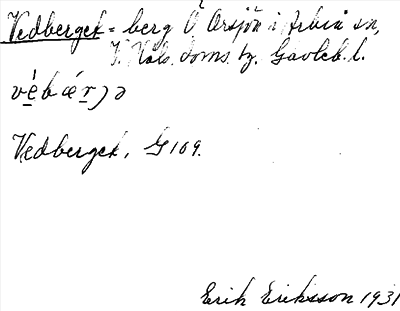 Vedberget = berg Ö Örsjön i Arbrå sn,
V. Häls. doms. tg. Gävleb. l.
vèbærjə
Vedberget, G 109.
Erik Eriksson 1931